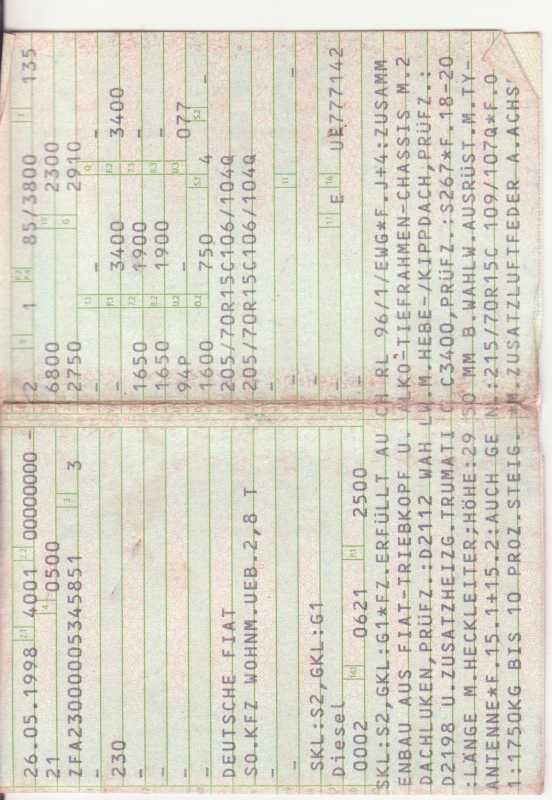 26.05.1998 2.1 4001 2.2 00000000 -
21 4 0500
ZFA23000005345851 3 3
-
230
-
-
-
-
DEUTSCHE FIAT
SO.KFZ WOHNM.UEB.2,8 T
-
-
SKL:S2,GKL:G1
Diesel
0002 0621 P.1 2500
2 9 1 P.2 P.4 85/3800 T 135
6800 18 2300
2750 G 2910
- - -
- 3400 3400
1650 1900 -
1650 1900 -
94P - 077
1600 750 4 -
205/70R15C106/104Q
205/70R15C106/104Q
- -
-
- 17 E 16 UE777142
SKL:S2,GKL:G1*FZ.ERFÜLLT AU CH RL 96/1/EWG*F.J+4:ZUSAMM
ENBAU AUS FIAT-TRIEBKOPF U. ALKO-TIEFRAHMEN-CHASSIS M.2
DACHLUKEN,PRÜFZ.:D2112 WAH LW.M.HEBE-/KIPPDACH,PRÜFZ.:
D2198 U.ZUSATZHEIZG.TRUMATI C C3400,PRÜFZ.:S267*F.18-20
:LÄNGE M.HECKLEITER;HÖHE:29 50 MM B.WAHLW.AUSRÜST.M.TY-
ANTENNE*F.15.1+15.2:AUCH GE N.:215/70R15C 109/107Q*F.O
1:1750KG BIS 10 PROZ.STEIG. *M.ZUSATZLUFTFEDER A.ACHS